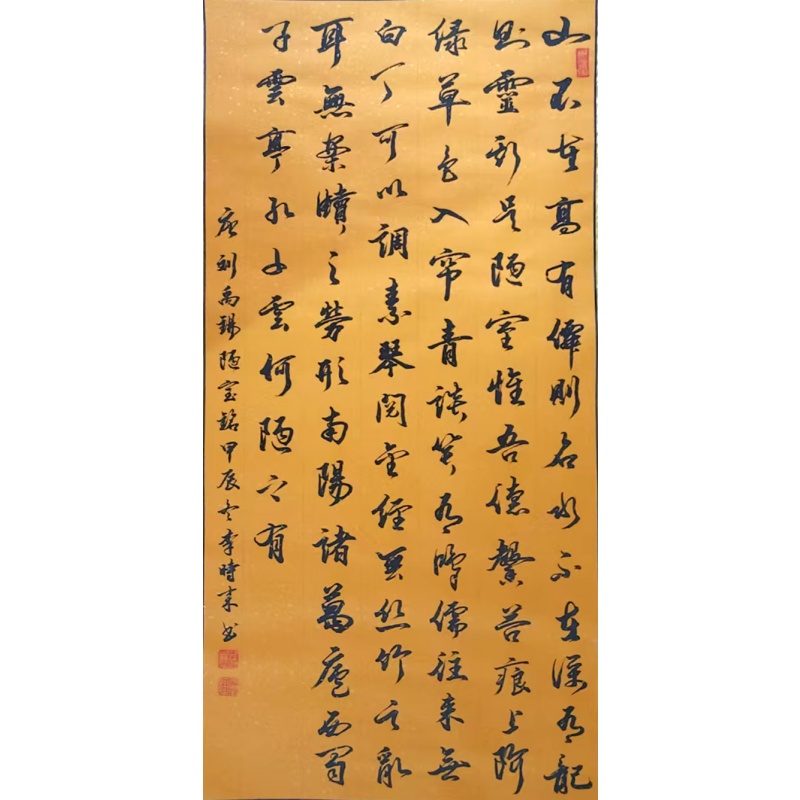 山不在高有僊則名水不在深有龍
則靈斯是陋室惟吾德馨苔痕上阶
绿草色入帘青談笑有鸿儒往来無
白丁可以調素琴閲金經無丝竹之亂
耳無案牘之勞形南陽諸葛廬西蜀
子雲亭孔子雲何陋之有
唐刘禹錫陋室銘甲辰冬李時来书